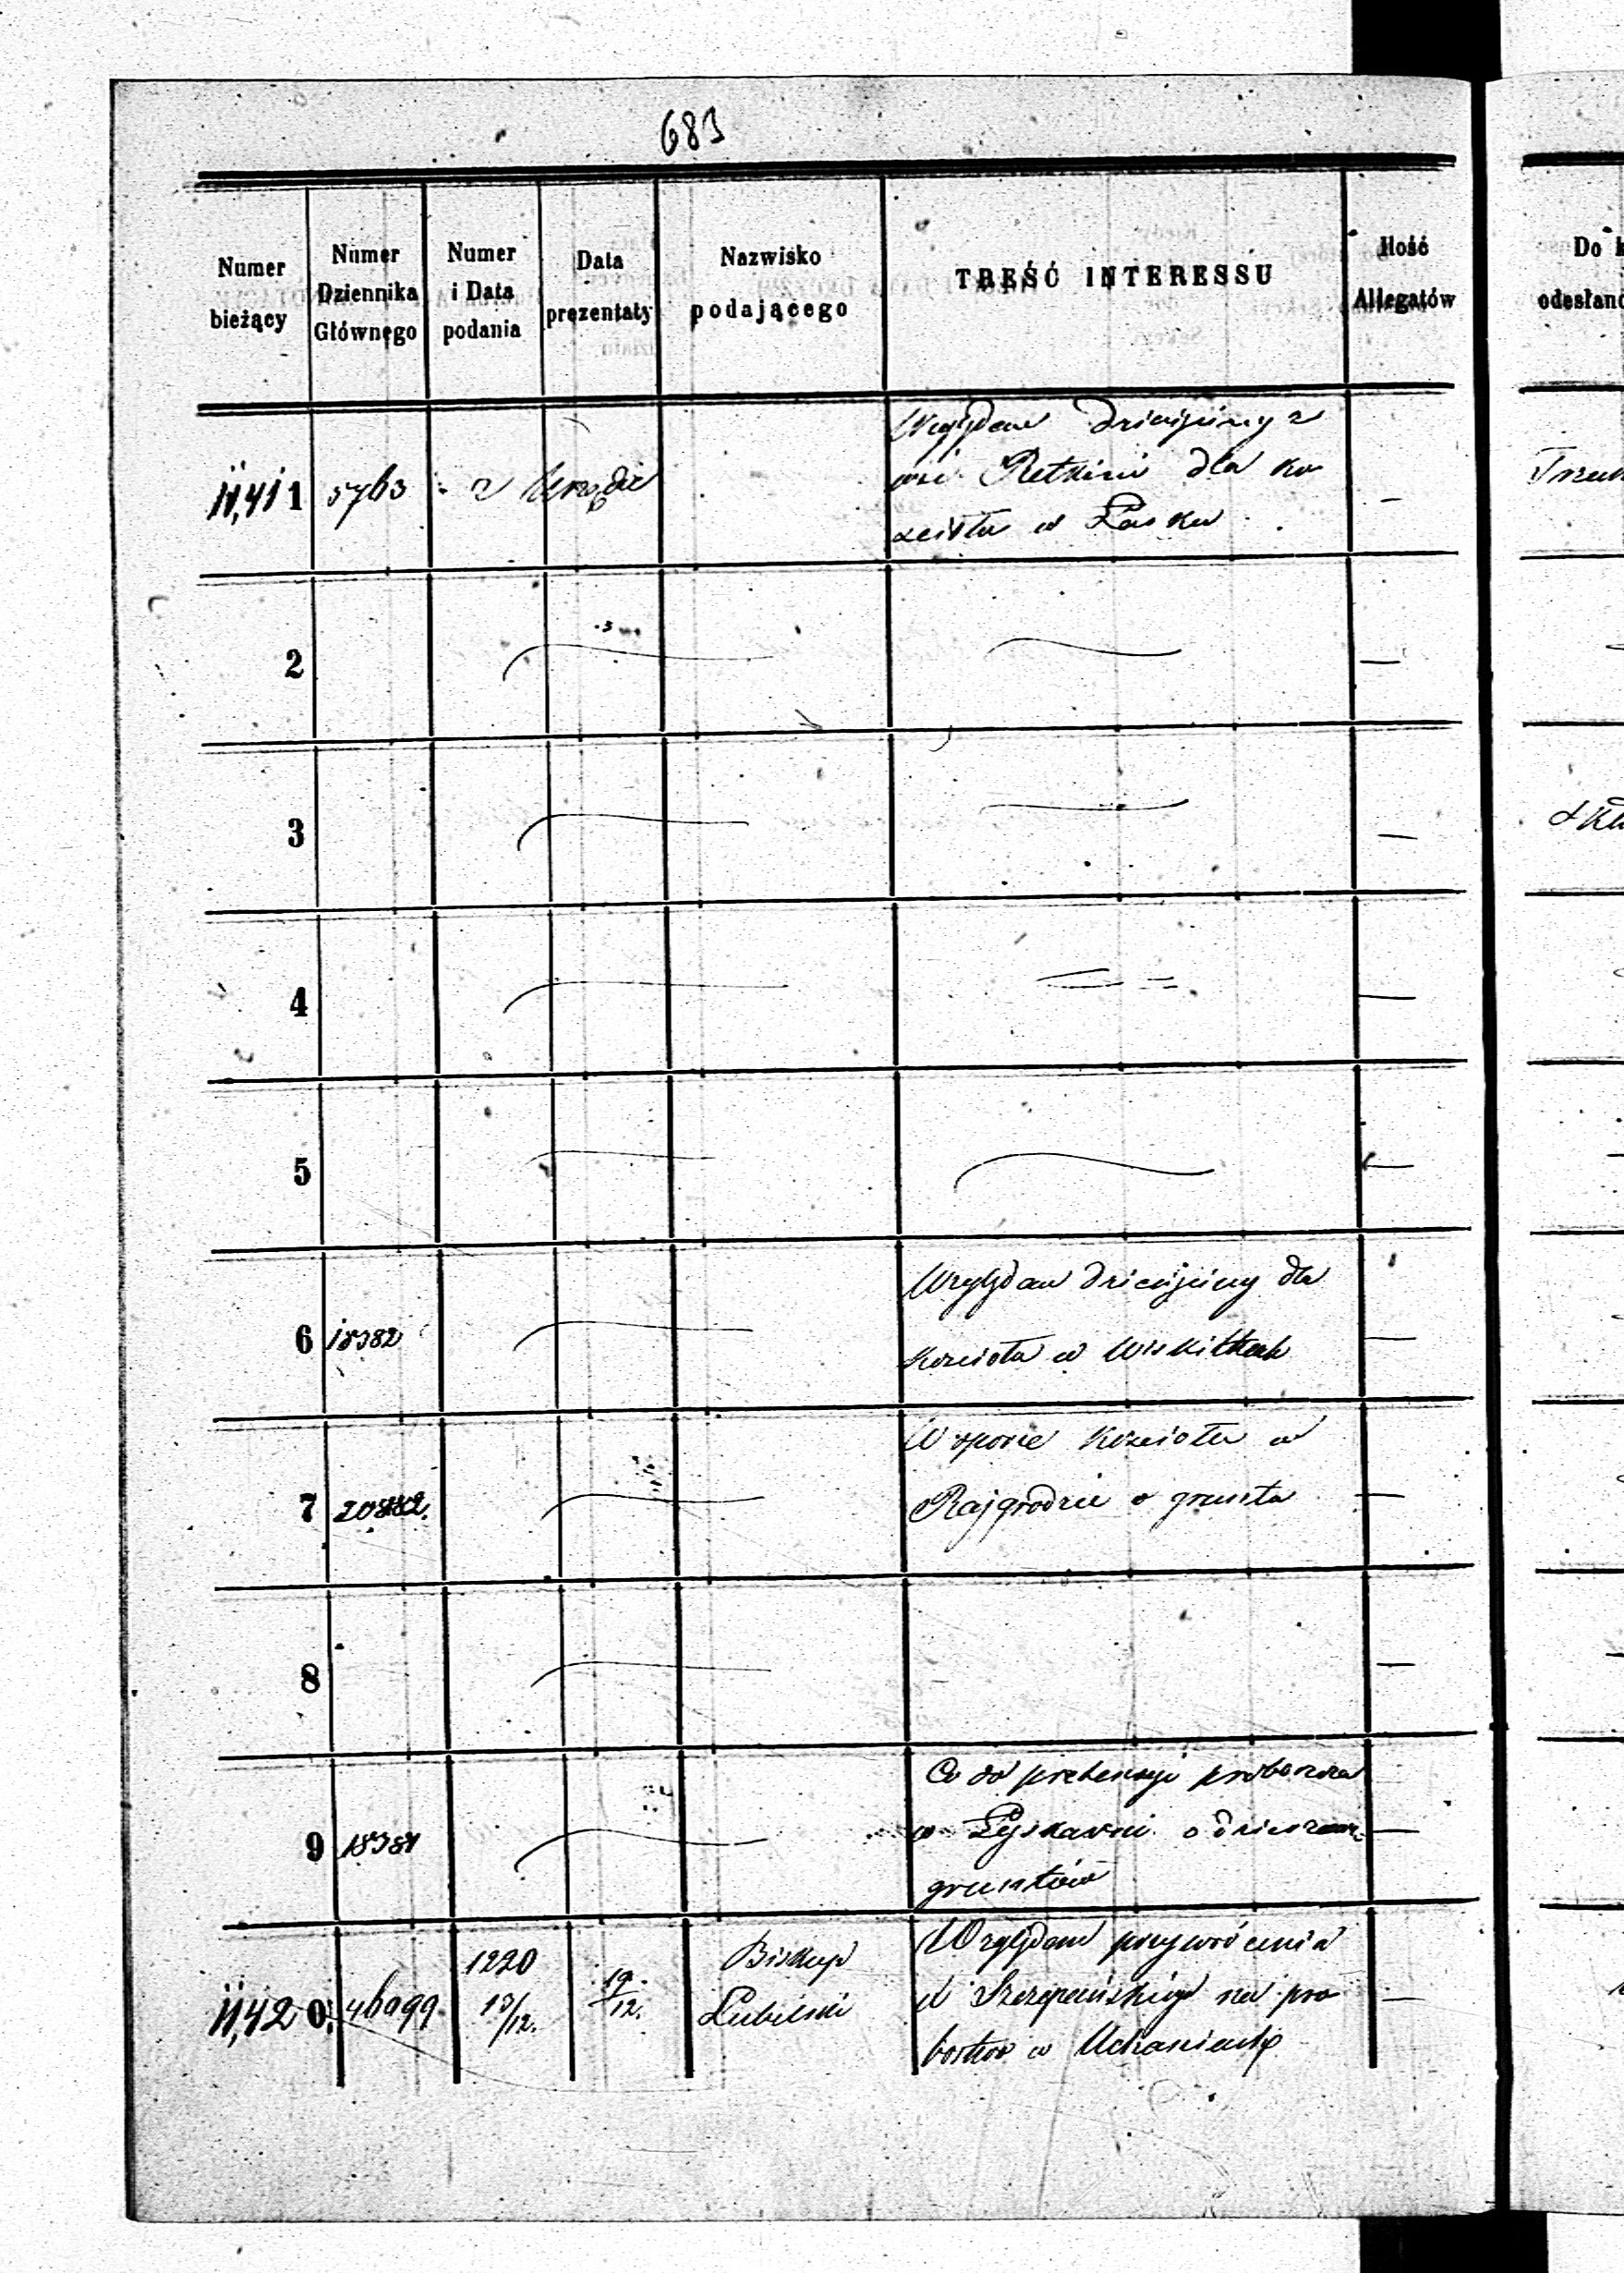 683
Numer bieżący
Numer Dziennika Głównego
Numer i Data podania
Data prezentaty
Nazwisko podającego
TREŚĆ INTERESSU
Ilość Allegatów
Do
odesłano
11,411 5763 z Urzędu
Względem dziesięciny z
wsi Retkini dla ko
scioła w Łasku
2
3
4
5
6
Względem dziesięciny dla
Kościoła w Wiskitkach
7 20882.
W sporze Kościoła w
Rajgrodzie o grunta
8
9
Co do pretensyi proboszcza
w
gruntów
11,420. 46099 1220 13/12. 19/12. Biskup Lubelski
Względem przywrócenia
X Szczepańskiego na pro
bostwo w Uchaniach